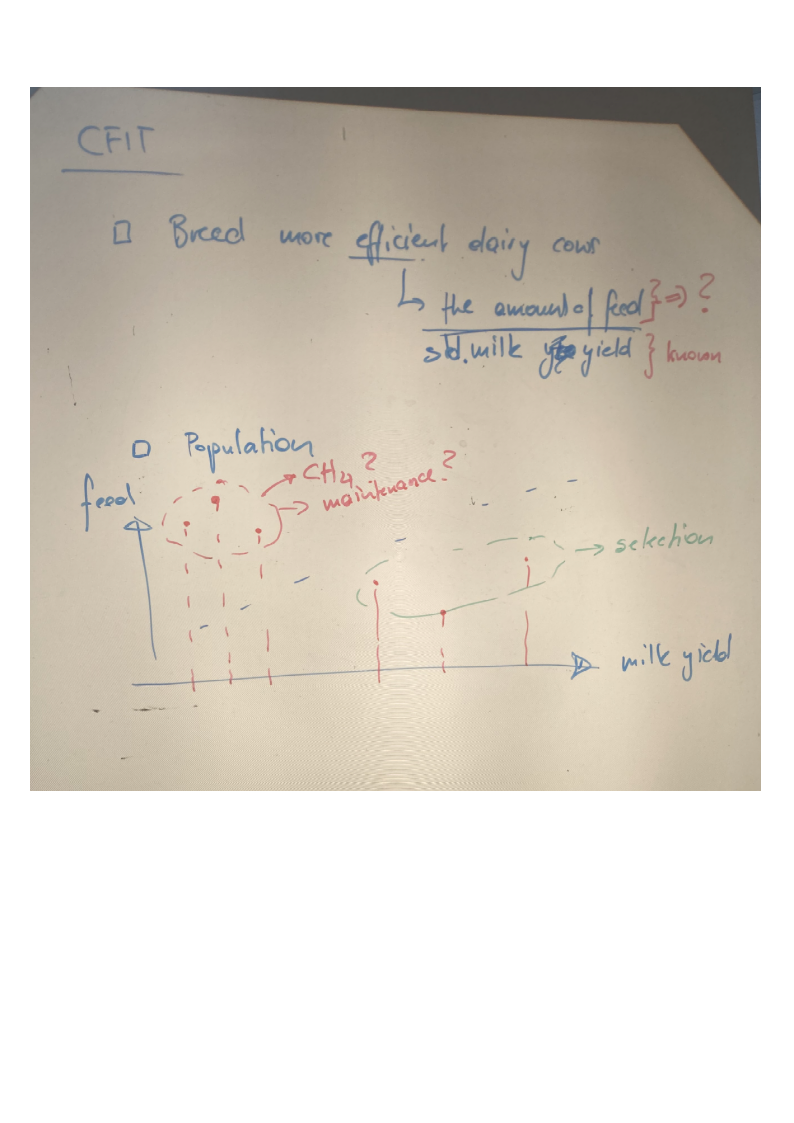 CFIT
□ Breed more efficient dairy cows
↳ the amount of feed } ⇒ ?
std. milk yield } known
□ Population
CH4 ?
→ maintenance ?
feed
→ selection
milk yield